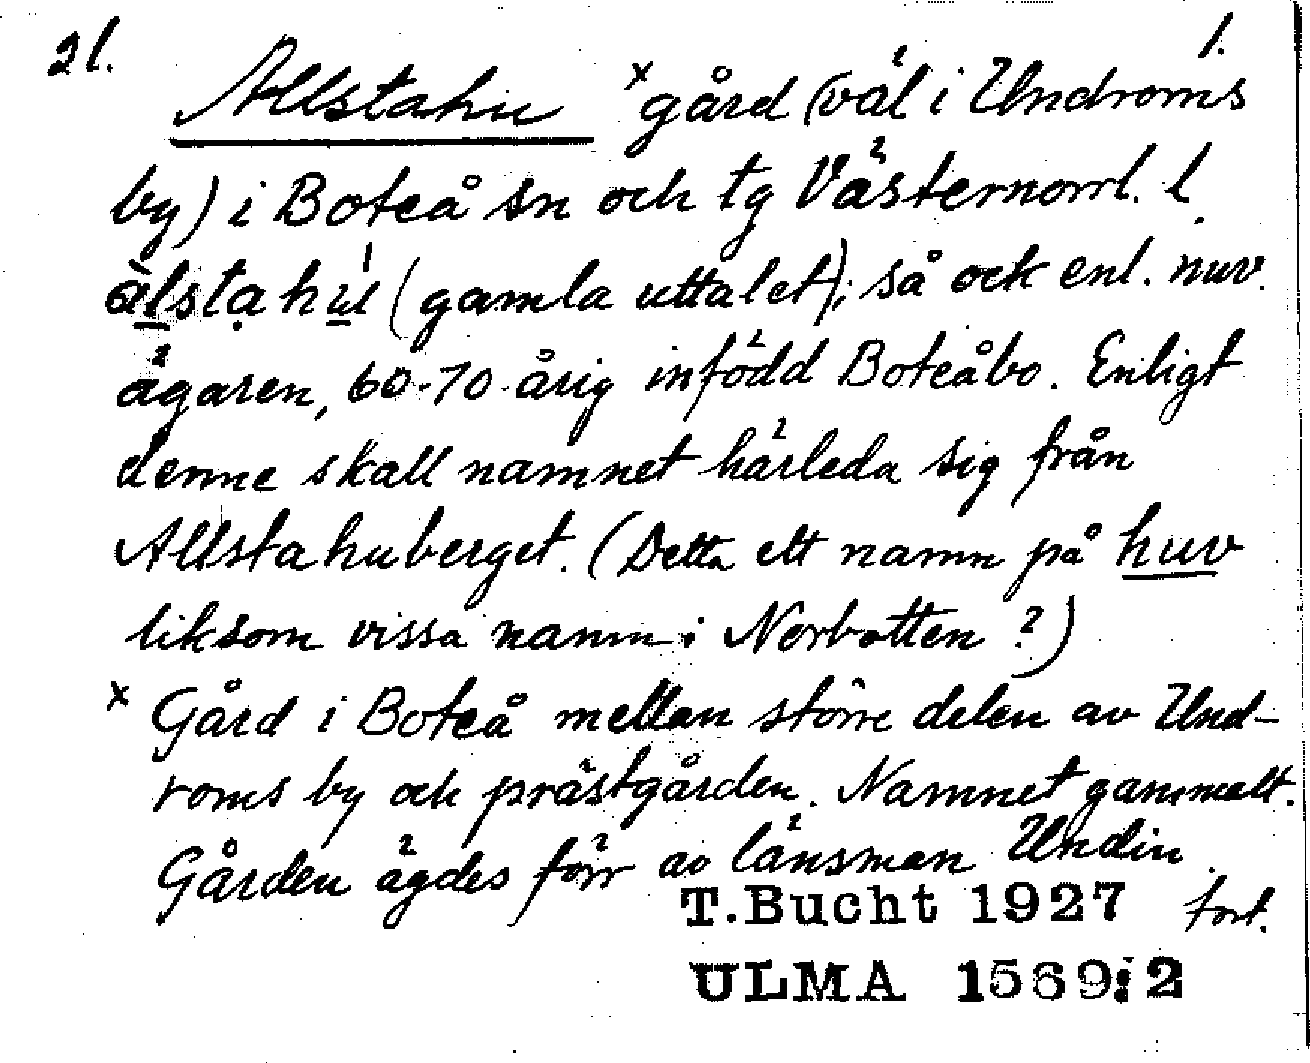 21. 1.
Allstahu ˣgård (väl i Undroms
by) i Boteå sn och tg Västernorrl. l.
(gamla uttalet); så ock enl. nuv.
ägaren, 60-70-årig infödd Boteåbo. Enligt
denne skall namnet härleda sig från
Allstahuberget. (Detta ett namn på huv
liksom vissa namn i Norbotten?)
x Gård i Boteå mellan större delen av Und-
roms by och prästgården. Namnet gammalt.
Gården ägdes förr av länsman Undin.
T.Bucht 1927 fort.
ULMA 1569:2